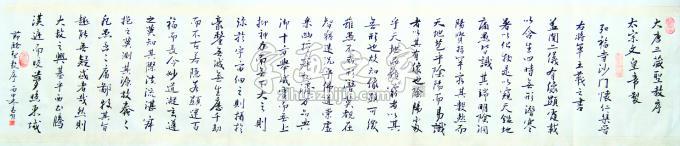 大唐三藏聖教序
太宗文皇帝製
弘福寺沙門懷仁集晉
右將軍王羲之書
蓋聞二儀有像顯覆載
以含生四時無形潛寒
暑以化物是以窺天鑑地
庸愚皆識其端明陰洞
陽賢哲罕窮其數然而
天地苞乎陰陽而易識
者以其有像也陰陽處
乎天地而難窮者以其
無形也故知像顯可徵
雖愚不惑形潛莫覩在
智猶迷況乎佛道崇虛
乘幽控寂弘濟萬品典
御十方舉威靈而無上
抑神力而無下大之則
彌於宇宙細之則攝於
豪釐無滅無生歷千劫
而不古若隱若顯運百
福而長今妙道凝玄遵
之莫知其際法流湛寂
挹之莫測其源故知蠢蠢
凡愚區區庸鄙投其旨
趣能無疑惑者哉然則
大教之興基乎西土騰
漢庭而皎夢照東域
節臨聖教序